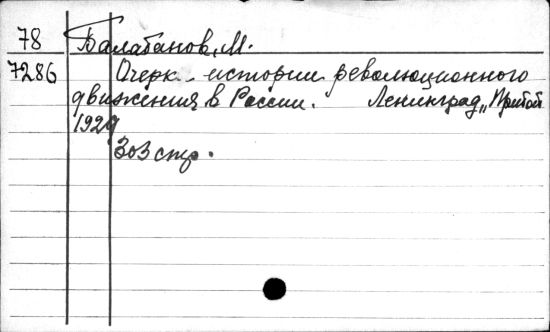 78 Балабанов, М.
7286 Очерк истории революционного
движения в России. Ленинград „Прибой
1929
303 стр.